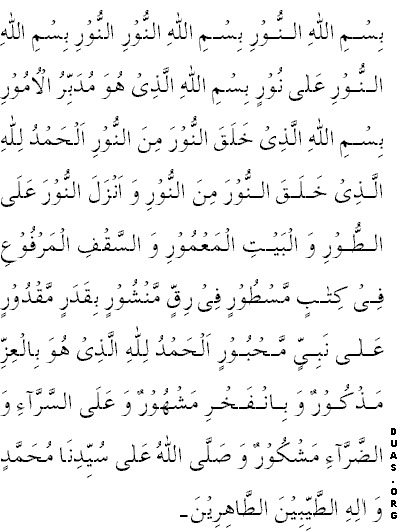 بِسْمِ اللهِ النُّوْرِ بِسْمِ اللهِ النُّوْرِ النُّوْرِ بِسْمِ اللهِ
النُّوْرِ عَلٰى نُوْرٍ بِسْمِ اللهِ الَّذِىْ هُوَ مُدَبِّرُ الْاُمُوْرِ
بِسْمِ اللهِ الَّذِىْ خَلَقَ النُّوْرَ مِنَ النُّوْرِ اَلْحَمْدُ لِلّٰهِ
الَّذِىْ خَلَقَ النُّوْرَ مِنَ النُّوْرِ وَ اَنْزَلَ النُّوْرَ عَلَى
الطُّوْرِ وَ الْبَيْتِ الْمَعْمُوْرِ وَ السَّقْفِ الْمَرْفُوْعِ
فِىْ كِتٰبٍ مَّسْطُوْرٍ فِىْ رِقٍّ مَّنْشُوْرٍ بِقَدَرٍ مَّقْدُوْرٍ
عَلٰى نَبِىٍّ مَّحْبُوْرٍ اَلْحَمْدُ لِلّٰهِ الَّذِىْ هُوَ بِالْعِزِّ
مَذْكُوْرٌ وَ بِالْفَخْرِ مَشْهُوْرٌ وَ عَلَى السَّرَّآءِ وَ
الضَّرَّآءِ مَشْكُوْرٌ وَ صَلَّى اللهُ عَلٰى سُيِّدِنَا مُحَمَّدٍ
وَ اٰلِهِ الطَّيِّبِيْنَ الطَّاهِرِيْنَ۔
DUAS.ORG